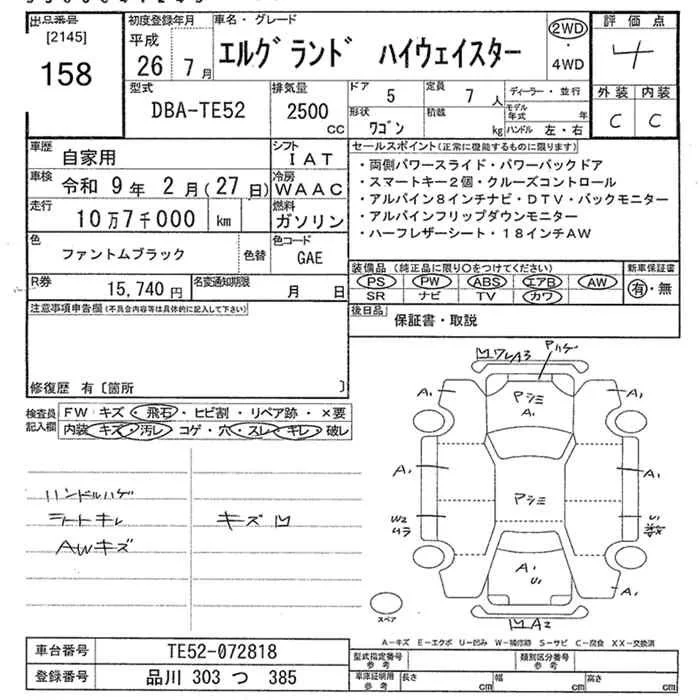 出品番号
[2145]
158
初度登録年月
平成
26 7月
車名・グレード
エルグランド ハイウェイスター
2WD
・
4WD
評価点
4
外装 内装
C C
型式
DBA-TE52
排気量
2500
CC
ドア 5
定員 7人
形状 ワゴン
積載 kg
ディーラー・並行
モデル年式 年
ハンドル 左・右
車歴 自家用
シフト IAT
車検 令和 9年 2月(27日)
冷房 WAAC
走行 10万7千000 km
燃料 ガソリン
色 ファントムブラック
色替
色コード GAE
R券 15,740円
名変通知期限 月 日
セールスポイント(正常に機能するものに限ります)
・両側パワースライド・パワーバックドア
・スマートキー2個・クルーズコントロール
・アルパイン8インチナビ・DTV・バックモニター
・アルパインフリップダウンモニター
・ハーフレザーシート・18インチAW
装備品 (純正品に限り○をつけてください)
PS PW ABS エアB AW
SR ナビ TV カワ
新車保証書
有・無
後日品 保証書・取説
注意事項申告欄(不具合内容等は具体的に記入して下さい)
修復歴 有〔箇所 〕
検査員記入欄
FW キズ・飛石・ヒビ割・リペア跡・×要
内装 キズ・汚レ コゲ・穴・スレ・キレ・破レ
ハンドルハゲ
シートキレ
AWキズ
キズ凹
A1
A1
アシミ
A1
A1
A1
アシミ
W2
ムラ
U1
A1
U1
A1
凹A2
スペア
A-キズ E-エクボ U-凹み W-補修跡 S-サビ C-腐食 XX-交換済
車台番号 TE52-072818
登録番号 品川 303 つ 385
型式指定番号
参考
類別区分番号
参考
車庫証明用
参考
長さ cm 幅 cm 高さ cm